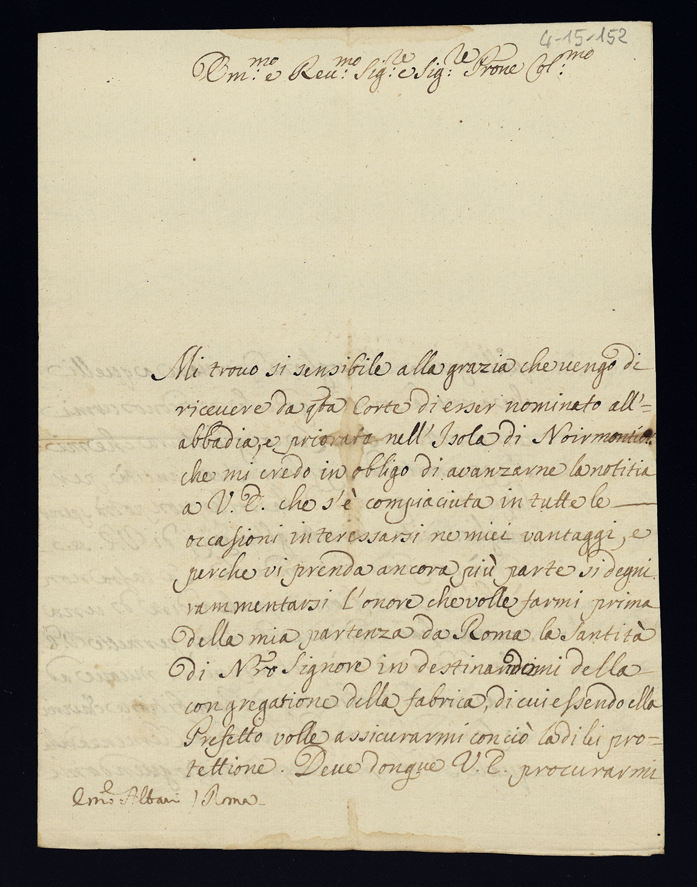 4-15-152
Em:mo e Reu:mo Sig:re e Sig:re Prone Col:mo
Mi trovo si sensibile alla grazia che vengo di
ricevere da qta Corte di esser nominato all'=
abbadia, e priorato nell'Isola di Noirmontier
che mi credo in obligo di avanzarne la notitia
a V. E. che s'è compiaciuta in tutte le
occasioni interessarsi ne miei vantaggi, e
perche vi prenda ancora più parte si degni
rammentarsi l'onore che volle farmi prima
della mia partenza da Roma la Santità
di Nro Signore in destinandomi della
congregatione della fabrica, di cui essendo ella
Prefetto volle assicurarmi con ciò la di lei pro=
tettione. Deve donque V. E. procurarmi
Em:o Albani ) Roma